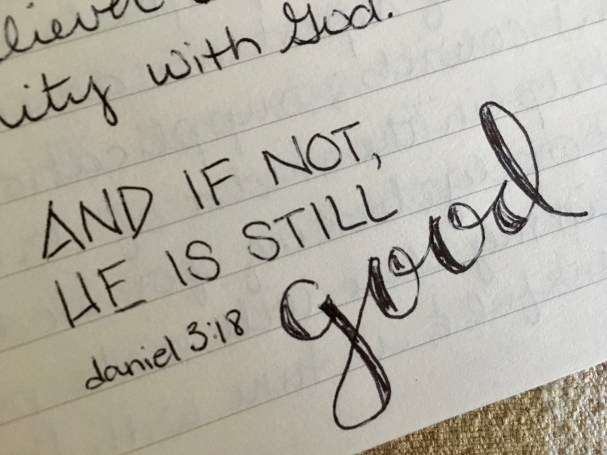 with God.
AND IF NOT,
HE IS STILL
good
daniel 3:18